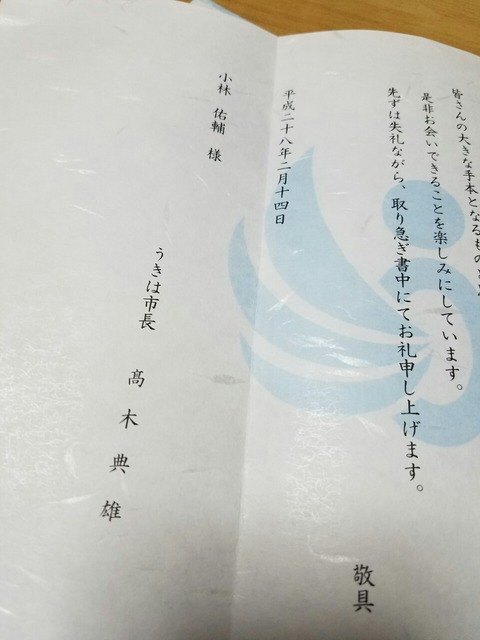 皆さんの大きな手本となるもの
是非お会いできることを楽しみにしています。
先ずは失礼ながら、取り急ぎ書中にてお礼申し上げます。
敬具
平成二十八年二月十四日
小林 佑輔 様
うきは市長 髙木典雄